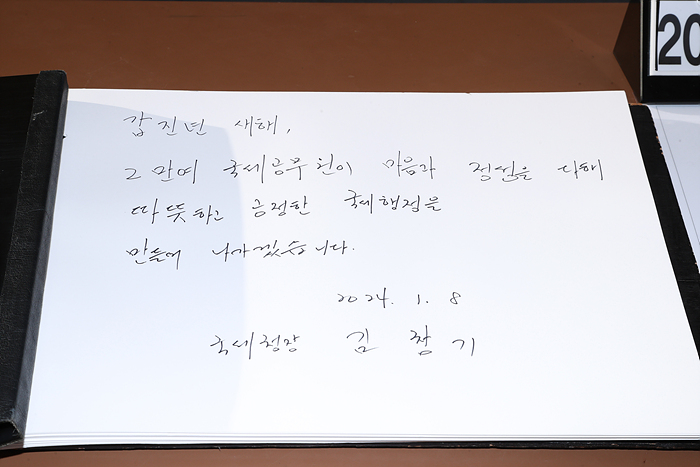 갑진년 새해,
2만여 국세공무원이 마음과 정성을 다해
따뜻하고 공정한 국세행정을
만들어 나가겠습니다.
2024. 1. 8
국세청장 김창기
20